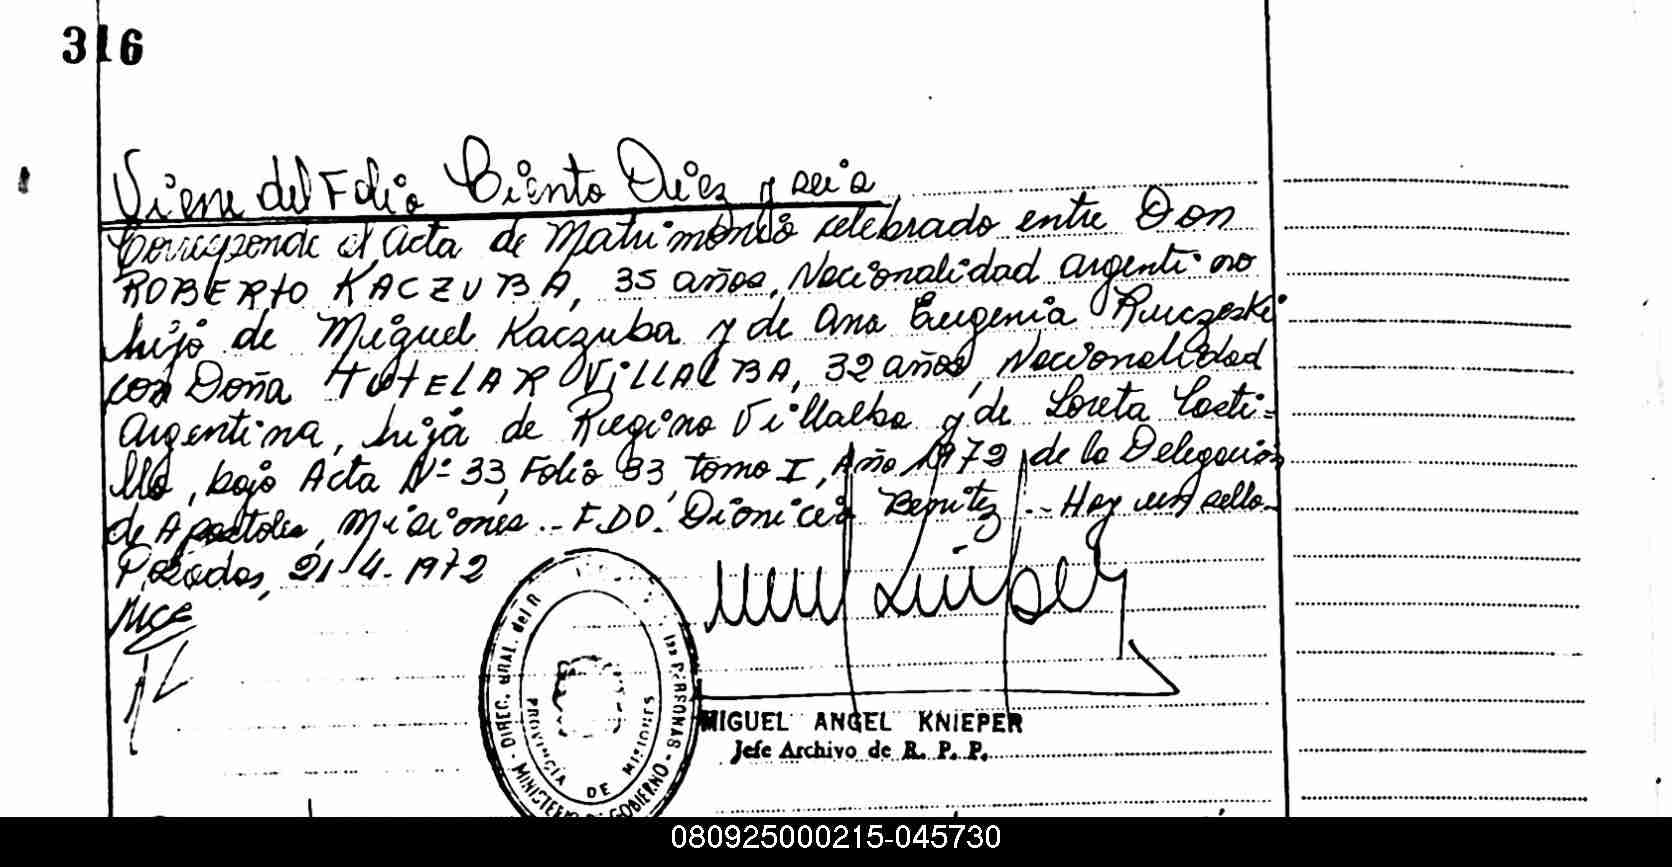 316
Viene del Folio Ciento Diez y seis
Corresponde al Acta de Matrimonio celebrado entre Don
ROBERTO KACZUBA, 35 años, Nacionalidad argentino
hijo de Miguel Kaczuba y de Ana Eugenia Ruczeski
con Doña TUTELAR VILLALBA, 32 años, Nacionalidad
Argentina, hija de Regino Villalba y de Loreta Casti=
llo, bajo Acta Nº 33, Folio 33, tomo I, Año 1972 de la Delegación
de Apostoles, Misiones.. FDO. Dionicia Benitez.- Hay un sello.-
Posadas, 21-4-1972
MIGUEL ANGEL KNIEPER
Jefe Archivo de R. P. P.
DIREC. GRAL. del R PERSONAS
MINISTERIO DE GOBIERNO
PROVINCIA DE MISIONES
080925000215-045730